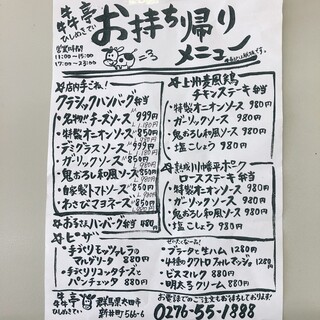 犇亭
ひしめきてい
お持ち帰り
メニュー
営業時間
11:00〜15:00
17:00〜23:00
店内手ごね!
クラシックハンバーグ弁当
・名物!!チーズソース 999円
・特製オニオンソース 850円
・デミグラスソース 999円
・ガーリックソース 850円
・鬼おろし和風ソース 850円
・自家製トマトソース 850円
・わさびマヨネーズ 850円
お子さんハンバーグ弁当 480円
ピザ
・手づくりモッツァレラの
マルゲリータ 880円
・手づくりリコッタチーズと
パンチェッタ 880円
上州麦風鶏
チキンステーキ弁当
・特製オニオンソース 980円
・ガーリックソース 980円
・鬼おろし和風ソース 980円
・塩こしょう 980円
熟成 ポーク
ロースステーキ弁当
・特製オニオンソース 980円
・ガーリックソース 980円
・鬼おろし和風ソース 980円
・塩こしょう 980円
ぜいたくなーム!
・ブラータと生ハム 1280円
・4種のクワトロフォルマッジ 1280円
・ビスマルク 880円
・明太クリーム 880円
犇亭
ひしめきてい
群馬県太田市
新井町566-6
お電話でのご注文もお待ちしております!
0276-55-1888